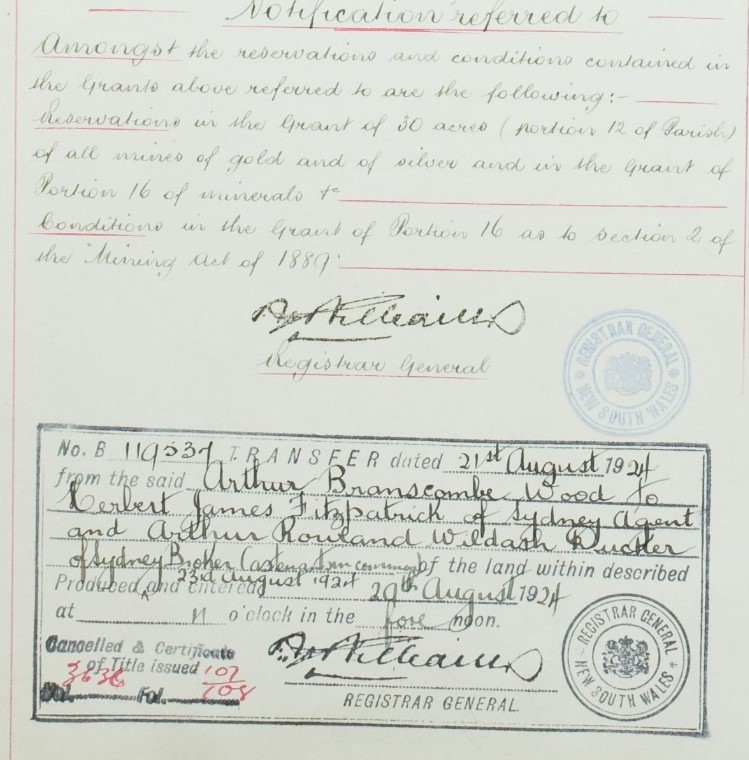 Notification referred to
Amongst the reservations and conditions contained in
the Grants above referred to are the following:-
Reservations in the Grant of 30 acres (portion 12 of Parish)
of all mines of gold and of silver and in the Grant of
Portion 16 of minerals &c
Conditions in the Grant of Portion 16 as to Section 2 of
the Mining Act of 1889.
Williams
Registrar General
REGISTRAR GENERAL
NEW SOUTH WALES
No. B 119537 TRANSFER dated 21st August 1924
from the said Arthur Branscombe Wood to
Herbert James Fitzpatrick of Sydney Agent
and Arthur Rowland Wildash Rucker
of Sydney Broker (as tenants in common) of the land within described
Produced 23rd August 1924 and entered 29th August 1924
at 11 o'clock in the fore noon.
Cancelled & Certificate
of Title issued
Vol. 3636 Fol. 107
108
Williams
REGISTRAR GENERAL.
REGISTRAR GENERAL
NEW SOUTH WALES